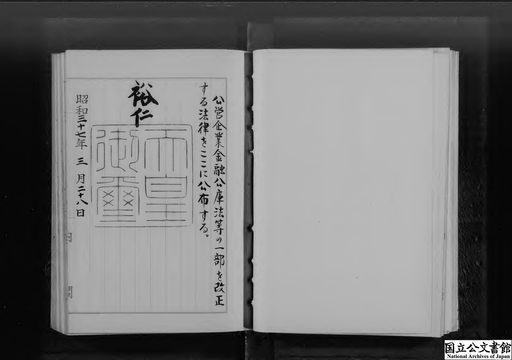 公営企業金融公庫法等の一部を改正
する法律をここに公布する。
裕仁
天皇御璽
昭和三十七年三月二十八日
国立公文書館
National Archives of Japan